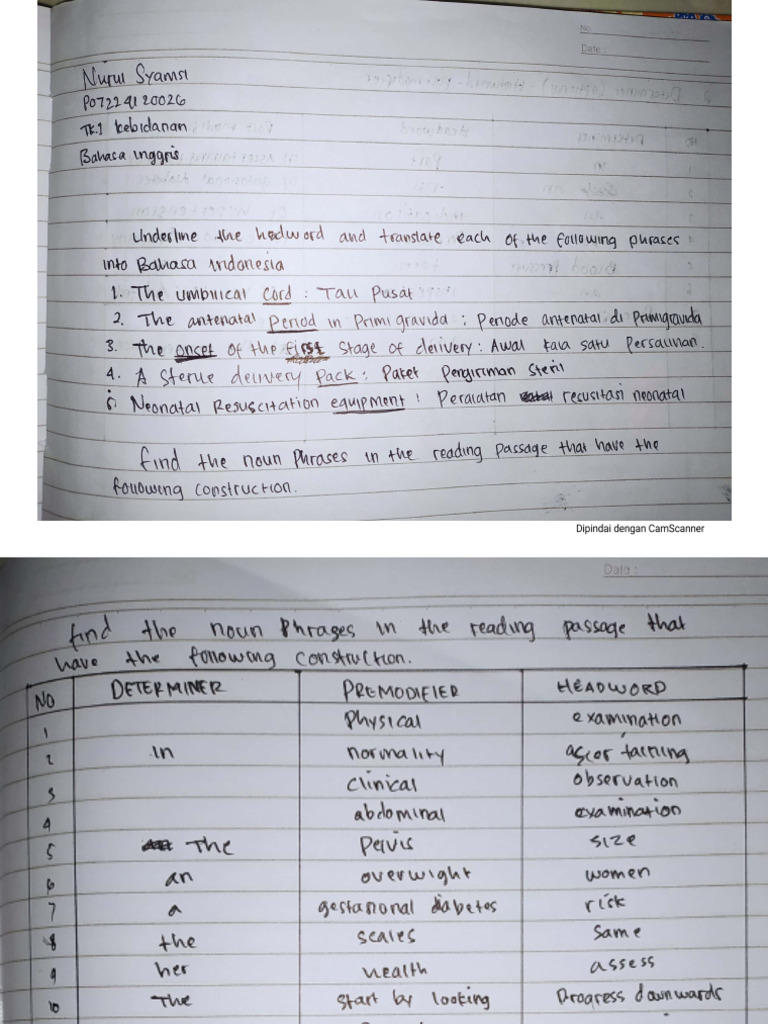 No.
Date :
Nurul Syamsi
P07224120026
TK.1 Kebidanan
Bahasa Inggris
Underline the hedword and translate each of the following phrases
into Bahasa Indonesia
1. The umbilical Cord : Tali Pusat
2. The antenatal Period in Primigravida : Periode antenatal di Primigravida
3. The onset of the first stage of delivery : Awal kala satu Persalinan.
4. A Sterile delivery Pack : Paket Pengiriman Steril
5. Neonatal Resuscitation equipment : Peralatan recusitasi neonatal
find the noun Phrases in the reading passage that have the
following construction.
Dipindai dengan CamScanner
Date :
find the noun Phrases in the reading passage that
have the following construction.
NO DETERMINER PREMODIFIER HEADWORD
1 Physical examination
2 in normality ascertaining
3 clinical observation
4 abdominal examination
5 The Pelvis size
6 an overwight women
7 a gestasional diabetes risk
8 the scales same
9 her health assess
10 The Start by looking Progress downwards